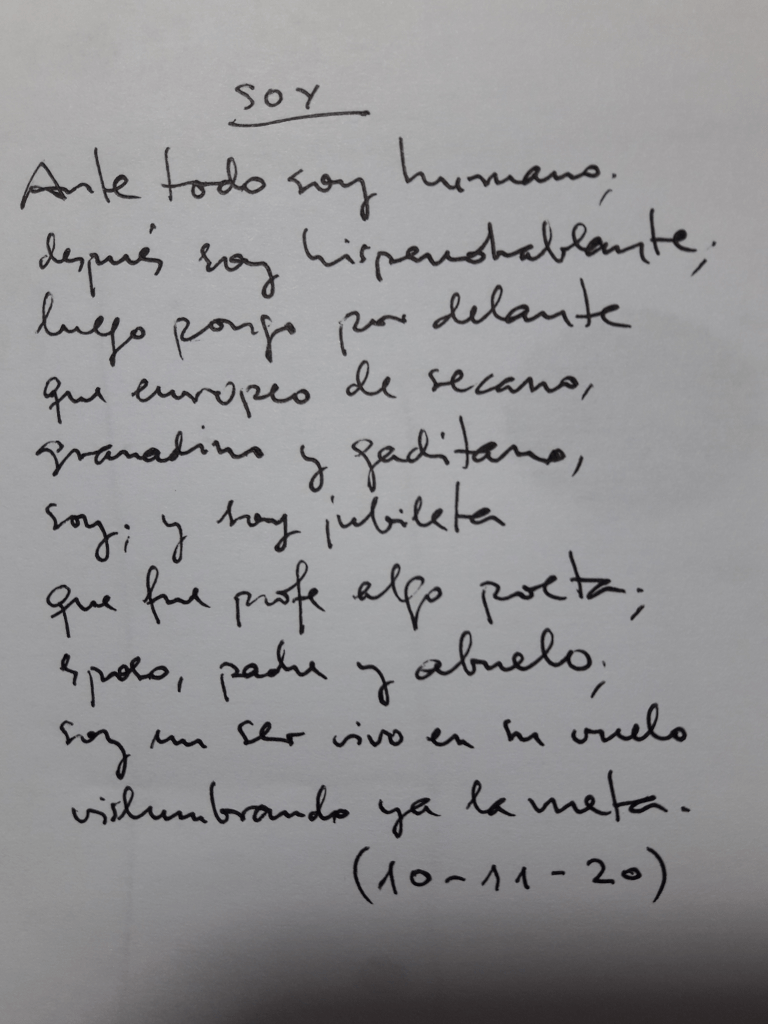 SOY
Ante todo soy humano;
después soy hispanohablante;
luego pongo por delante
que europeo de secano,
granadino y gaditano,
soy; y soy jubileta
que fue profe algo poeta;
esposo, padre y abuelo;
soy un ser vivo en su vuelo
vislumbrando ya la meta.
(10-11-20)